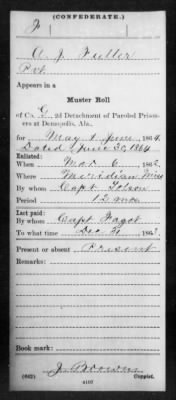 (CONFEDERATE.)
F
A. J. Fuller
Pvt
Appears in a
Muster Roll
of Co. G, 2d Detachment of Paroled Prisoners
at Demopolis, Ala.
for May & June, 1864.
Dated June 30, 1864
Enlisted:
When Mar 6, 1862
Where Meridian Miss
By whom Capt
Period 12 mos
Last paid:
By whom Capt
To what time Dec 31, 1862
Present or absent Present
Remarks:
Book mark:
J. Brown
(642) Copyist.